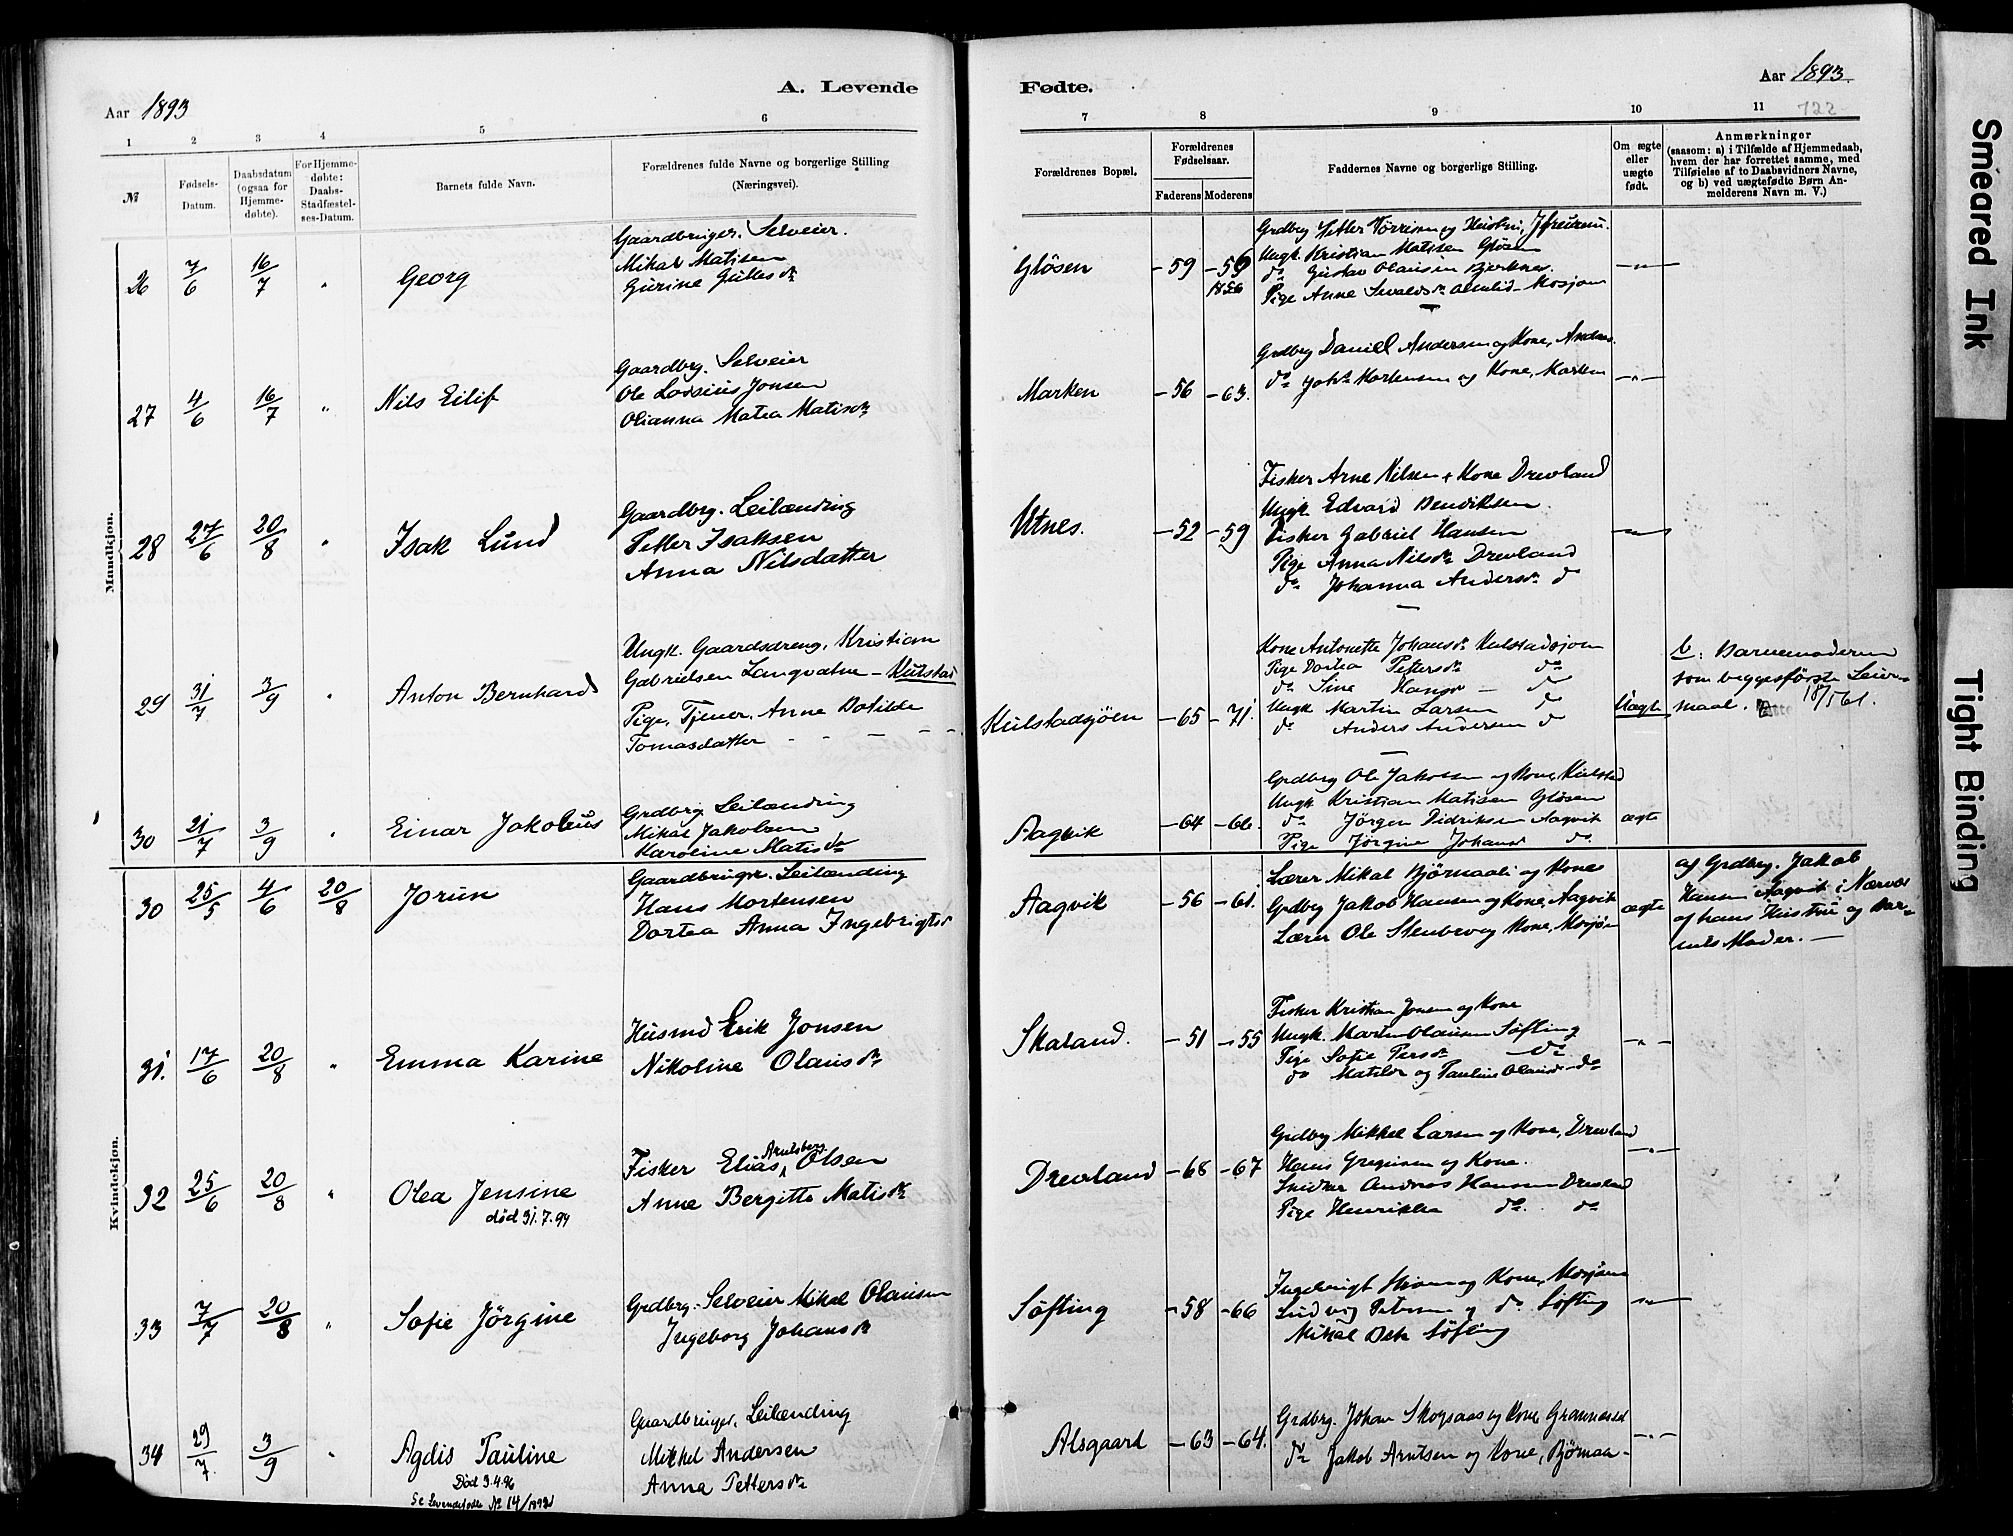 Aar 1893
A. Levende
1
2
3
4
5
6
№
Fødsels-
Datum.
Daabsdatum
(ogsaa for
Hjemme-
døbte).
For Hjemme-
døbte:
Daabs-
Stadfæstel-
ses-Datum.
Barnets fulde Navn.
Forældrenes fulde Navne og borgerlige Stilling
(Næringsvei).
Mandkjøn.
26
7/6
16/7
"
Georg
Gaardbruger. Selveier.
Mikal Matisen
Gurine
27
4/6
16/7
"
Nils Eilif
Gaardbrg. Selveier
Ole Lossius Jonsen
Olianna Matea Matisdr
28
27/6
20/8
"
Isak Lund
Gaardbrg. Leilænding
Petter Isaksen
Anna Nilsdatter
29
31/7
3/9
"
Anton Bernhard
Ungk. Gaardsdreng, Kristian
Gabrielsen Langvatne – Kulstad
Pige, Tjener, Anne Botilde
Tomasdatter - - - -
30
21/7
3/9
"
Einar Jakobus
Grdbrg. Leilænding
Mikal Jakobsen
Karoline Matisdr
Kvindekjøn.
30
25/5
4/6
20/8
Jorun
Gaardbrugr. Leilænding
Hans Mortensen
Dortea Anna Ingebrigtsd
31.
17/6
20/8
"
Emma Karine
Husmd Erik Jonsen
Nikoline Olausdr
32
25/6
20/8
"
Olea Jensine
død 31.7.94
Fisker Elias Arntsberg Olsen
Anne Bergitte Matisdr
33
7/7
20/8
"
Sofie Jørgine
Grdbrg. Selveier Mikal Olausen
Ingeborg Johansdr
34
29/7
3/9
"
Agdis Pauline
Død 3.4.96
Se Levendefødte № 14/1892
Gaardbruger, Leilænding
Mikkel Andersen
Anna Pettersdr
Fødte.
Aar 1893.
722
7
8
9
10
11
Forældrenes Bopæl.
Forældrenes
Fødselsaar.
Faderens
Moderens
Faddernes Navne og borgerlige Stilling.
Om ægte
eller
uægte
født.
Anmærkninger
(saasom: a) i Tilfælde af Hjemmedaab,
hvem der har forrettet samme, med
Tilføielse af to Daabsvidners Navne,
og b) ved uægtefødte Børn An-
melderens Navn m. V.)
Gløsen
–59
–59
1856
Grdbrg Petter og Hustru,
Ungk. Kristian Matisen Gløsen
do Gustav Olausen Bjerknes.
Pige Anne Sivaldsdr – Mosjøen
–"–
Marken
–56
–63.
Grdbrg Daniel Andersen og Kone, Andaas.
do Johs Mortensen og Kone, Marken
–"–
Utnes.
–52
–59
Fisker Arne Nilsen + Kone Drevland
Ungk. Edvard Bendriksen.
Fisker Gabriel Hansen
Pige Anna Nilsdr Drevland
do Johanna Andersdr do
–"–
Kulstadsjøen
–65
–71.
Kone Antonette Johansdr Kulstadsjøen
Pige Dortea Pettersdr do
do Sine Hansdr – do
Ungk Martin Larsen do
do Anders Andersen do
Uægte
b. Barnemoderen
som beggesførste Leier-
maal. 18/5 61.
Aagvik
–64
–66.
Grdbrg Ole Jakobsen og Kone, Kulstad
Ungk Kristian Matisen Gløsen
do Jörgen Didriksen Aagvik
Pige Jørgine Johansd do.
ægte
Aagvik
–56
–61.
Lærer Mikal Bjørnaali og Kone
Grdbrg Jakob Hansen og Kone, Aagvik
Lærer Ole Stenbrv og Kone, Mosjøen
ægte
af Grdbrg. Jakob
Hansen Aagvik i Nærvær
af hans Hustru og Bar-
nets Moder. –
Skaland.
–51
–55
Fisker Kristian Jonsen og Kone
Ungk. Martin Olausen Søfting
Pige Sofie Persdr do
do Matilde og Pauline Olausdr do
–"–
Drevland
–68
–67
Grdbrg Mikkel Larsen og Kone, Drevland
Hans Gregusen og Kone.
Snidker Andreas Hansen Drevland
Pige Henrikke do. do
–"–
Søfting
–58
–66
Ingebrigt og Kone, Mosjøen
Ludvig Petersen og do. Søfting
Mikal Søfting
–"–
Alsgaard
–63
–64.
Grdbrg. Johan Skogsaas og Kone, Grannæsel
do Jakob Arntsen og Kone, Bjørnaa–
–"–
Smeared Ink
Tight Binding